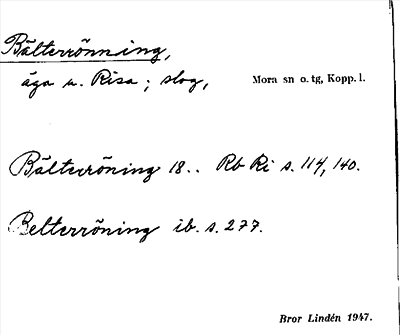 Bälterrönning,
äga u. Risa; slog, Mora sn o. tg, Kopp. l.
Bälterröning 18.. Rb Ri s. 114, 140.
Belterröning ib. s. 277.
Bror Lindén 1947.